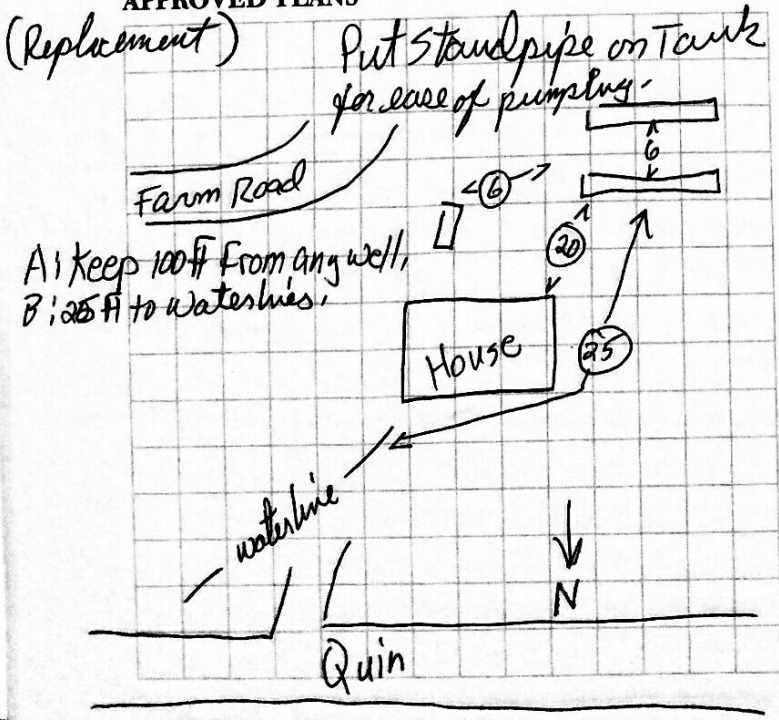 APPROVED PLANS
(Replacement)
Put Standpipe on Tank
for ease of pumping.
6
Farm Road
6
A: Keep 100 ft From any well,
20
B: 25 ft to waterlines.
House
25
waterline
N
Quin